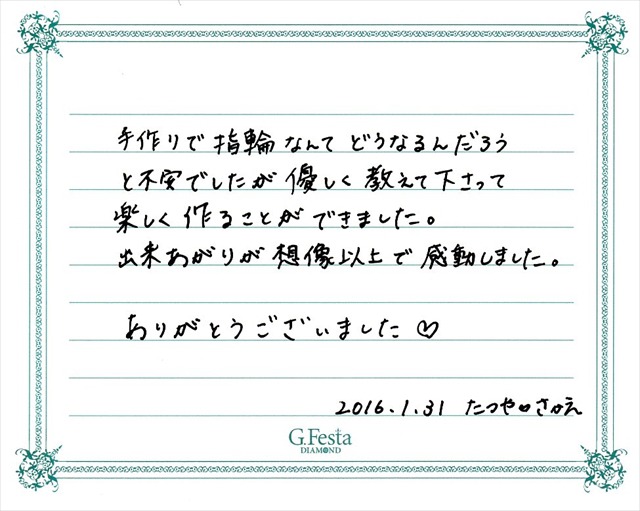 手作りで指輪なんてどうなるんだろう
と不安でしたが優しく教えて下さって
楽しく作ることができました。
出来あがりが想像以上で感動しました。
ありがとうございました♡
2016.1.31 たつや♡さかえ
G.Festa
DIAMOND